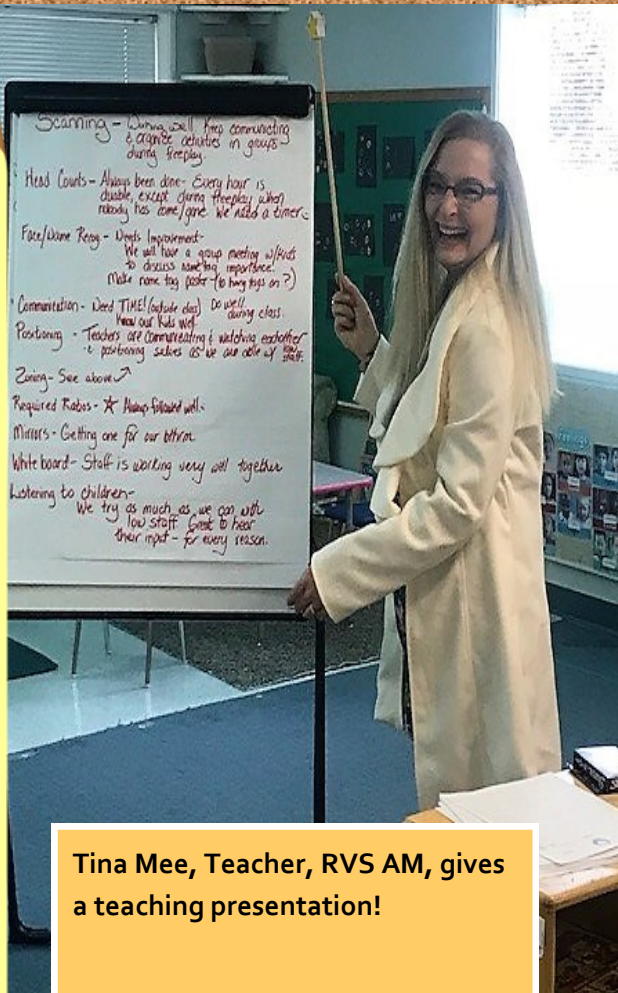 Scanning - During well Keep communicating
& organize activities in groups
during freeplay.
Head Counts - Always been done - Every hour is
doable, except during freeplay when
nobody has come/gone We need a timer
Face/Name Recog - Needs Improvement-
We will have a group meeting w/kids
to discuss name tag importance!
Make name tag poster (to hang tags on?)
Communication - Need TIME! (outside class) Do well
Know our kids well during class.
Positioning - Teachers are communicating & watching eachother
& positioning selves as we are able w/ low
staff.
Zoning - See above
Required Ratios - Always followed well.
Mirrors - Getting one for our bthrm
White board - Staff is working very well together
Listening to children-
We try as much as we can with
low staff Great to hear
their input - for every reason.
Tina Mee, Teacher, RVS AM, gives
a teaching presentation!